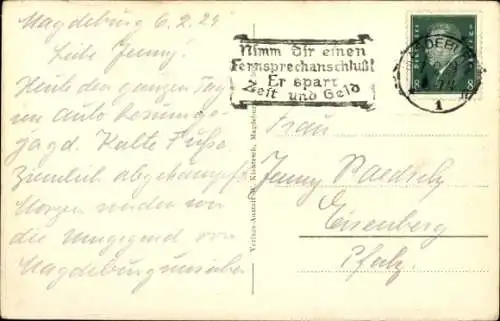 Magdeburg 6.2.29
Liebe Jenny!
Heute den ganzen Tag
im Auto herumge-
jagd. Kalte Füße.
Ziemlich abgekämpft
Morgen werden wir
die Umgegend von
Magdeburg unsicher
Verlags-Anstalt W. Klaproth, Magdeburg
Nimm dir einen
Fernsprechanschluß!
Er spart
Zeit und Geld
MAGDEBURG
1
8
8
Frau
Jenny
Eisenberg
Pfalz.